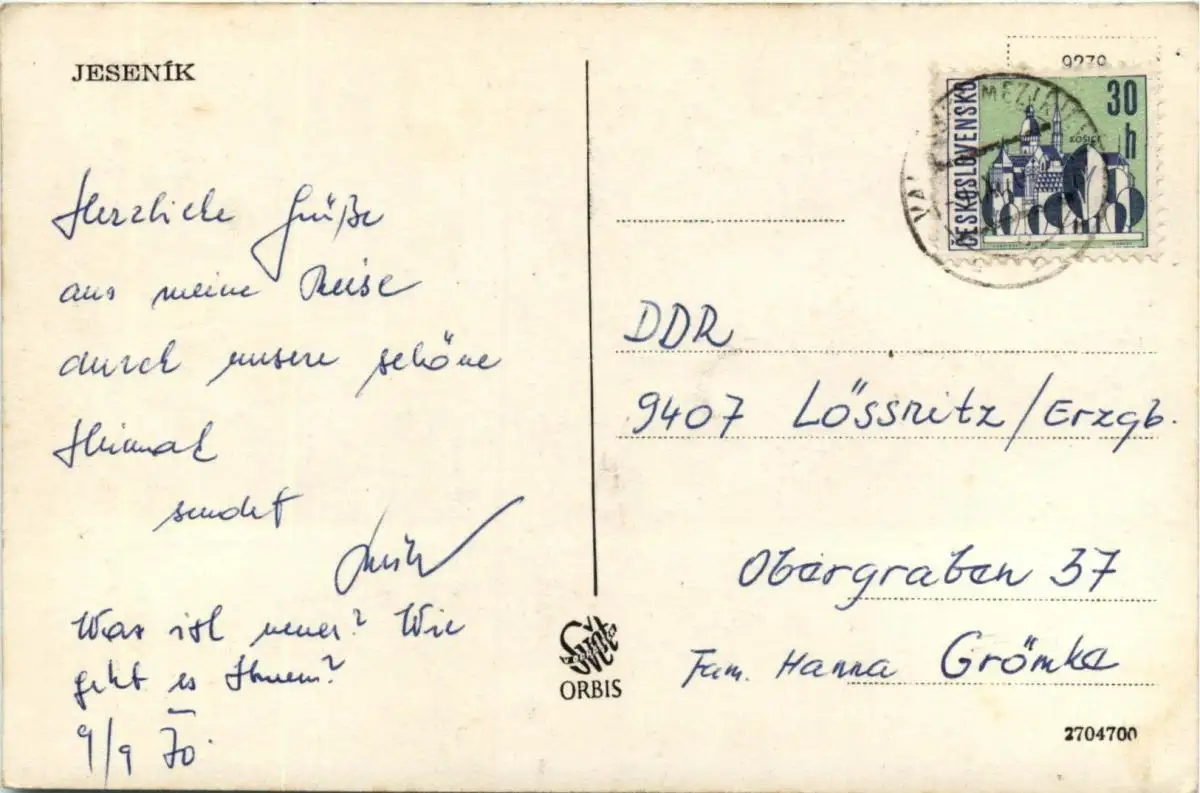 JESENÍK
Herzliche Grüße
aus meine Reise
durch unsere schöne
Heimat
sendet
Was ist neues? Wie
geht es Ihnen?
9/9 70.
Svět
ORBIS
9279
ČESKOSLOVENSKO
30
h
KOŠICE
DDR
9407 Lössnitz/Erzgb.
Obergraben 37
Fam. Hanna Grömke
2704700